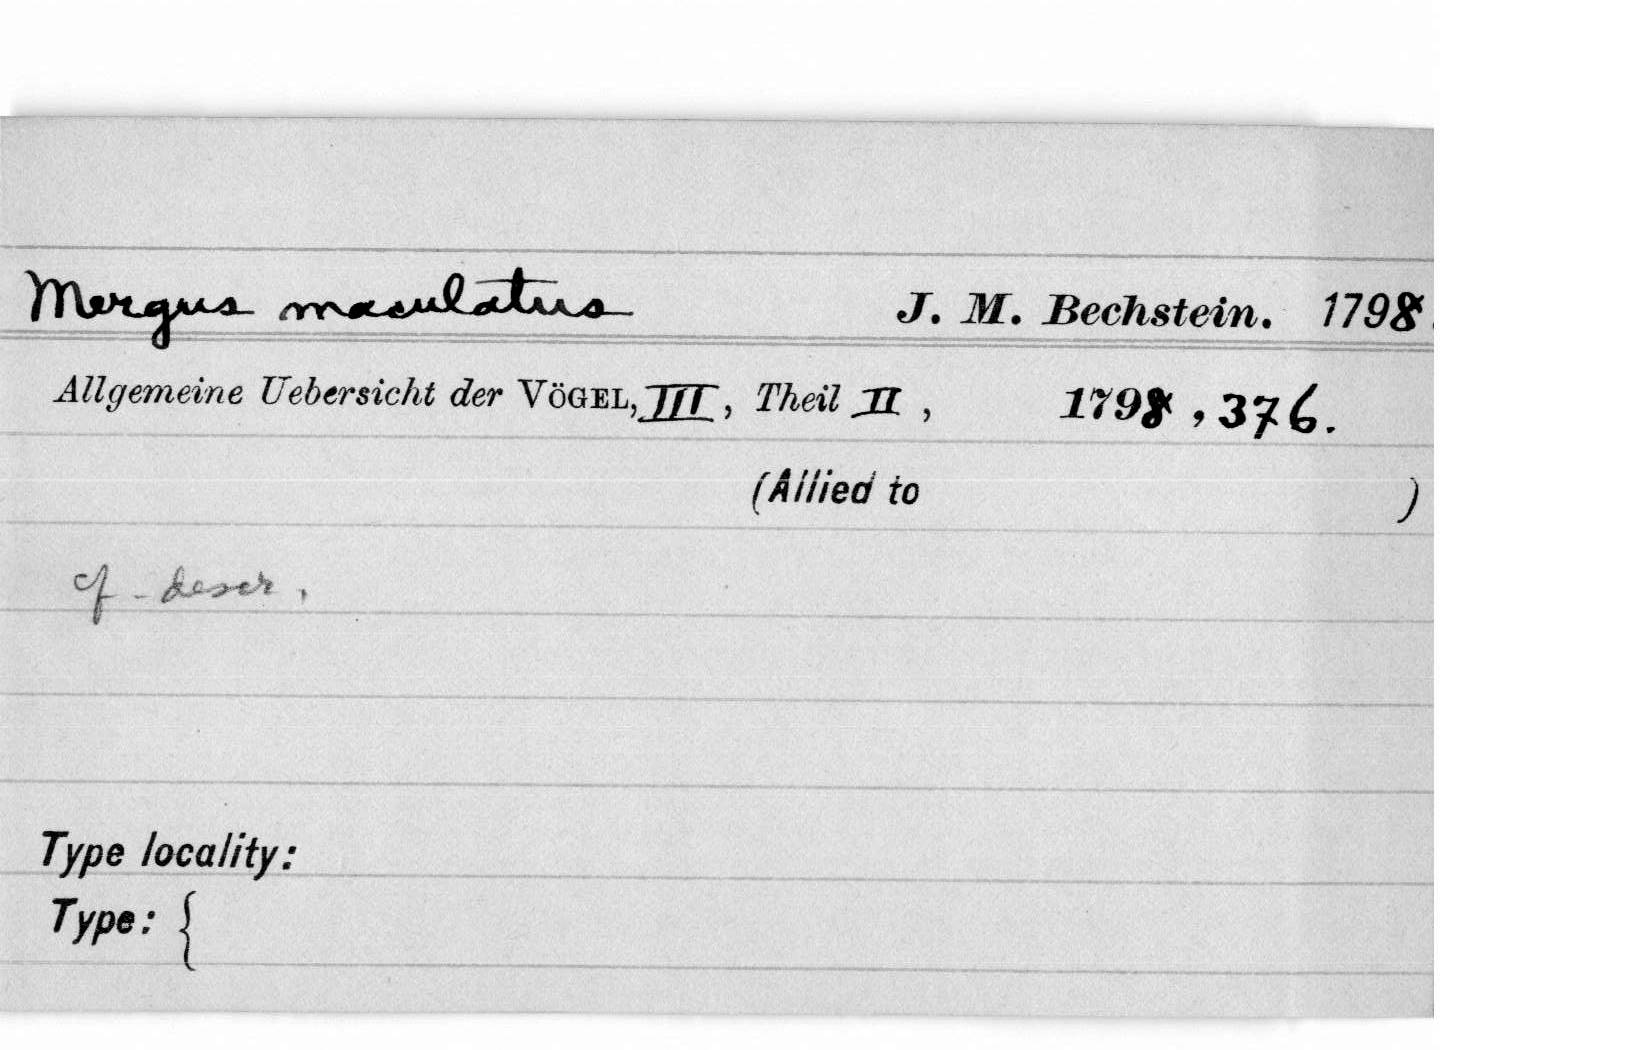 Mergus maculatus J. M. Bechstein. 1798.
Allgemeine Uebersicht der VÖGEL, III, Theil II, 1798, 376.
(Allied to )
cf. descr.
Type locality:
Type: {